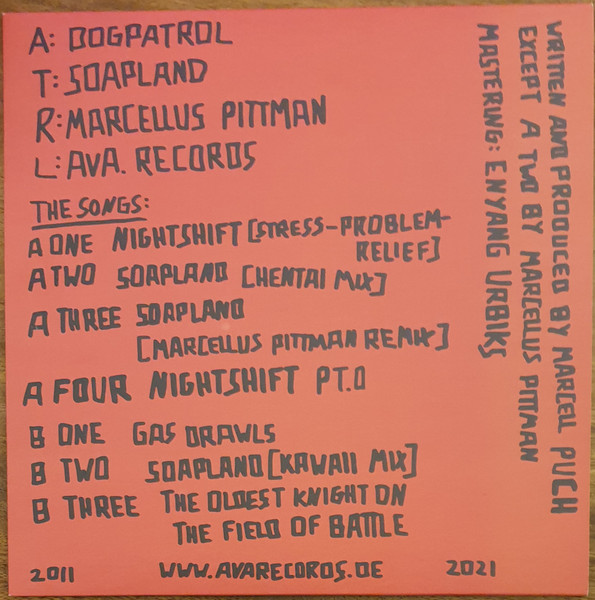 A: DOGPATROL
T: SOAPLAND
R: MARCELLUS PITTMAN
L: AVA. RECORDS
THE SONGS:
A ONE NIGHTSHIFT [STRESS-PROBLEM-
RELIEF]
A TWO SOAPLAND [HENTAI MIX]
A THREE SOAPLAND
[MARCELLUS PITTMAN REMIX]
A FOUR NIGHTSHIFT PT.0
B ONE GAS DRAWLS
B TWO SOAPLAND [KAWAII MIX]
B THREE THE OLDEST KNIGHT ON
THE FIELD OF BATTLE
2011 WWW.AVARECORDS.DE 2021
WRITTEN AND PRODUCED BY MARCELL PUCH
EXCEPT A TWO BY MARCELLUS PITTMAN
MASTERING: ENYANG URBIKS